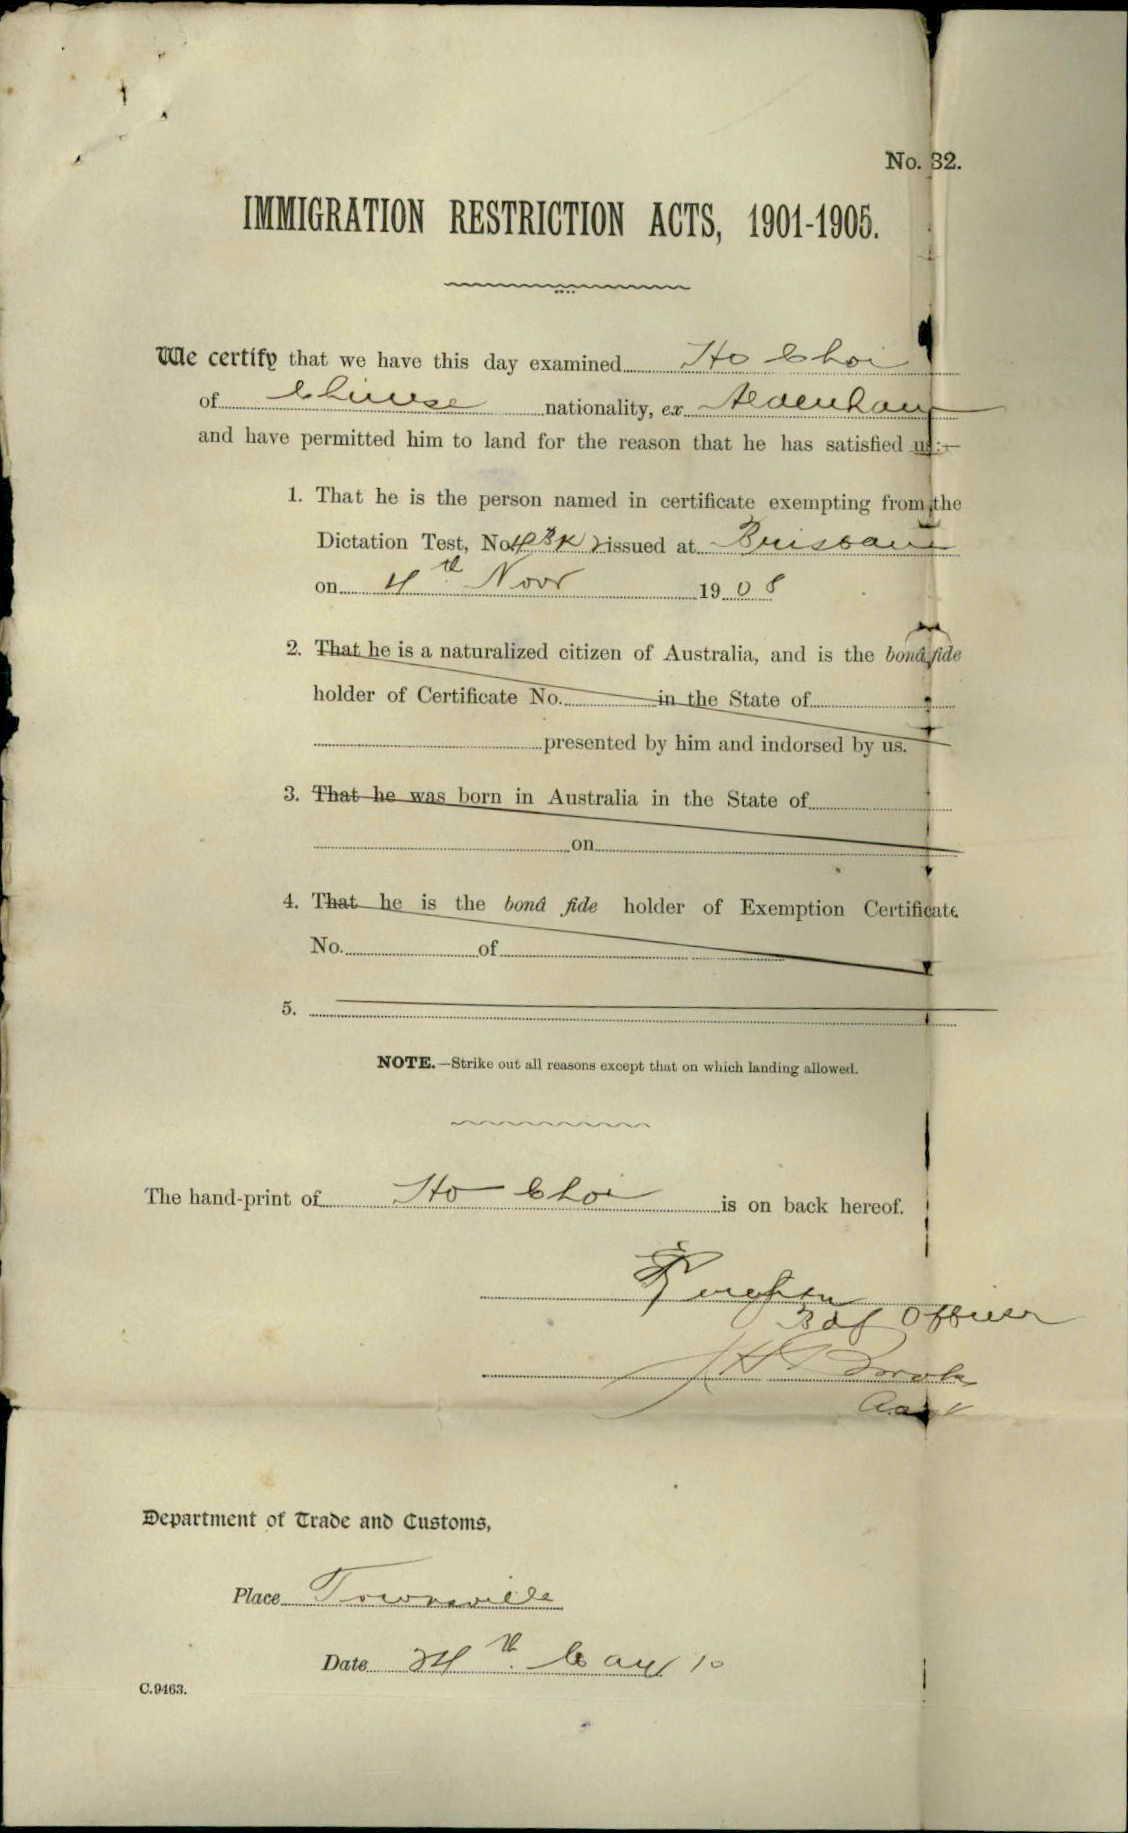 No. 32.
IMMIGRATION RESTRICTION ACTS, 1901-1905.
We certify that we have this day examined Ho Choi
of Chinese nationality, ex Aldenham
and have permitted him to land for the reason that he has satisfied us:—
1. That he is the person named in certificate exempting from the
Dictation Test, No. issued at Brisbane
on 4th Novr 1908
2. That he is a naturalized citizen of Australia, and is the bonâ fide
holder of Certificate No. in the State of
presented by him and indorsed by us.
3. That he was born in Australia in the State of
on
4. That he is the bonâ fide holder of Exemption Certificate
No. of
5.
NOTE.—Strike out all reasons except that on which landing allowed.
The hand-print of Ho Choi is on back hereof.
Officer
Department of Trade and Customs,
Place Townsville
Date 24th 10
C.9463.